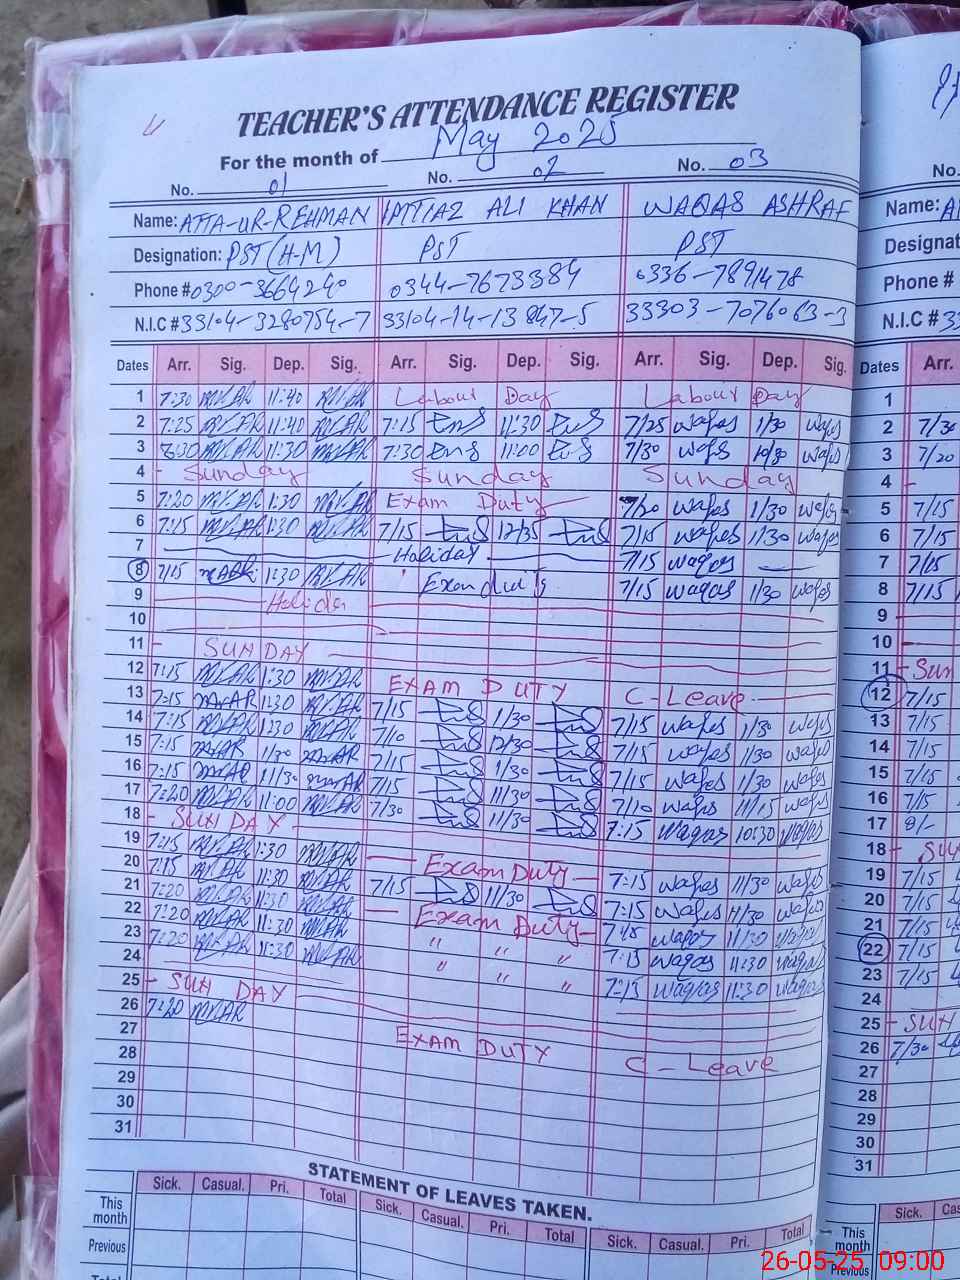 TEACHER'S ATTENDANCE REGISTER
For the month of May 2025
No. 01 No. 02 No. 03 No.
Name: ATTA-UR-REHMAN IMTIAZ ALI KHAN WAQAS ASHRAF Name:
Designation: PST (H-M) PST PST
Phone # 0300-3664240 0344-7673384 0336-7891478 Phone #
N.I.C # 33104-3280754-7 33104-14-13847-5 33303-7076063-3 N.I.C #
Dates Arr. Sig. Dep. Sig. Arr. Sig. Dep. Sig. Arr. Sig. Dep. Sig. Dates Arr.
1 7:30 11:40 Labour Day Labour Day 1
2 7:25 11:40 7:15 11:30 7/25 1/30 2 7/30
3 7:30 11:30 7:30 11:00 7/30 10/30 3 7/20
4 - Sunday Sunday Sunday 4 -
5 7:20 1:30 Exam Duty 7/20 1/30 5 7/15
6 7:15 1:30 7/15 12/35 7/15 1/30 6 7/15
7 Holiday 7/15 waqas 7 7/15
8 7/15 1:30 Exam duty 7/15 waqas 1/30 8 7/15
9 Holiday 9
10 10
11 - SUNDAY 11 - Sun
12 7:15 1:30 EXAM DUTY C-Leave 12 7/15
13 7:15 1:30 7/15 1/30 7/15 1/30 13 7/15
14 7:15 1:30 7/10 12/30 7/15 1/30 14 7/15
15 7:15 1/30 7/15 1/30 7/15 1/30 15 7/15
16 7:15 11/30 7/15 11/30 7/10 11/15 16 7/15
17 7:20 11:00 7/30 11/30 7:15 waqas 10:30 waqas 17 8/-
18 - SUNDAY 18 - SUN
19 7:15 1:30 Exam Duty 7:15 11/30 19 7/15
20 7:15 11:30 7/15 11/30 7:15 11/30 20 7/15
21 7:20 11:30 Exam Duty 7:15 waqas 11/30 21 7/15
22 7:20 11:30 " " " 7:15 waqas 11:30 waqas 22 7/15
23 7:20 11:30 " " " 7:15 waqas 11:30 waqas 23 7/15
24 24
25 - SUNDAY 25 - SUN
26 7:20 EXAM DUTY C-Leave 26 7/30
27 27
28 28
29 29
30 30
31 31
STATEMENT OF LEAVES TAKEN.
Sick. Casual. Pri. Total Sick. Casual. Pri. Total Sick. Casual. Pri. Total Sick.
This month This month
Previous Previous
Total
26-05-25 09:00